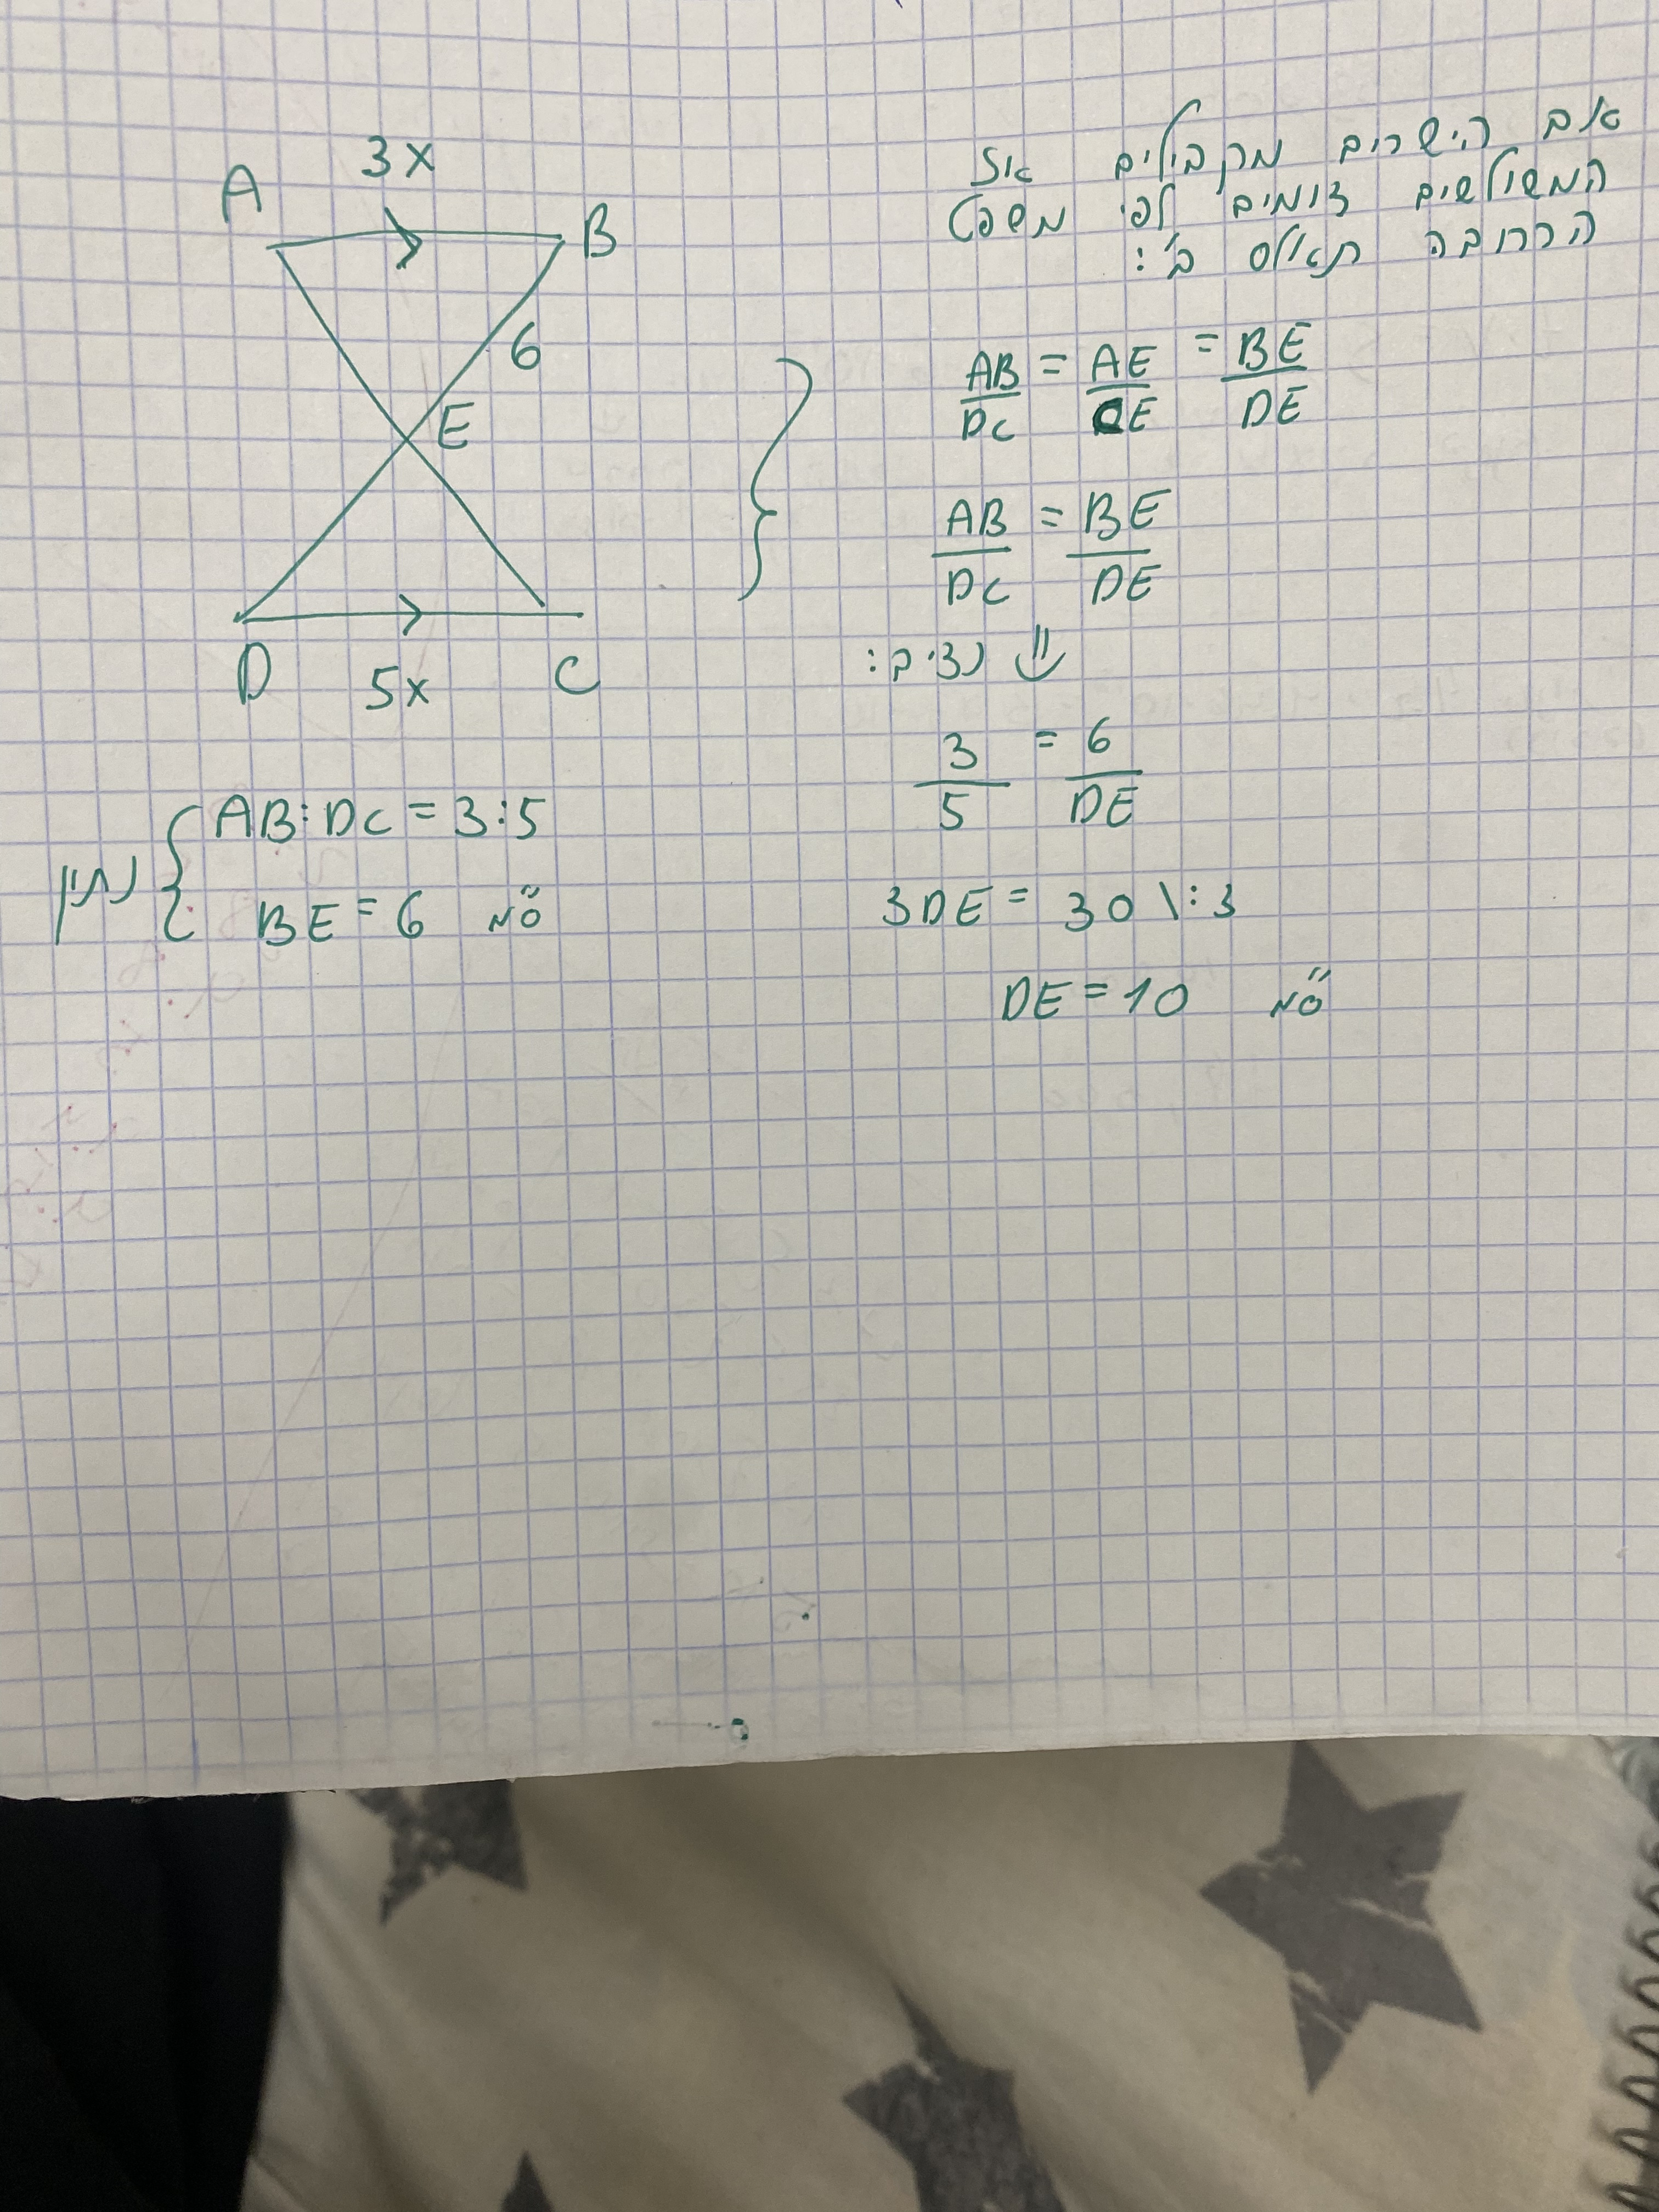 3x
A
B
6
E
D
5x
C
נתון
AB:DC = 3:5
BE = 6 ס"מ
אם הישרים מקבילים אז
המשולשים דומים לפי משפט
הרחבה תאלס ב':
AB/DC = AE/CE = BE/DE
AB/DC = BE/DE
⇓ נציב:
3/5 = 6/DE
3DE = 30 \:3
DE = 10 ס"מ